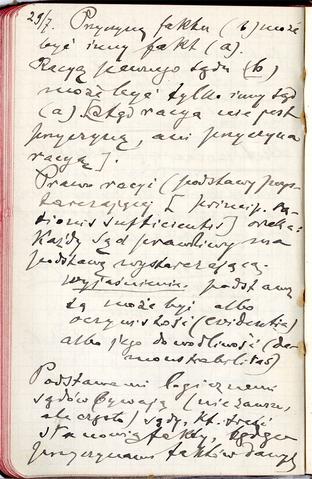 29/7. Przyczyną faktu (b) może
być inny fakt (a).
Racyą pewnego sądu (b)
może być tylko inny sąd
(a). [Stąd racya nie jest
przyczyną, ani przyczyna
racyą].
Prawo racyi (podstawy wys-
tarczającej [princip. ra-
tionis sufficientis] orzeka:
Każdy sąd prawdziwy ma
podstawę wystarczającą.
wyjaśnienie: podstawą
tą może być albo
oczywistość (evidentia)
albo jego dowodliwość (de-
monstrabilitas)
Podstawami logicznemi
sądów bywają (nie zawsze,
ale często) sądy, kt. treść
stanowią fakty, będące
przyczynami faktów danych